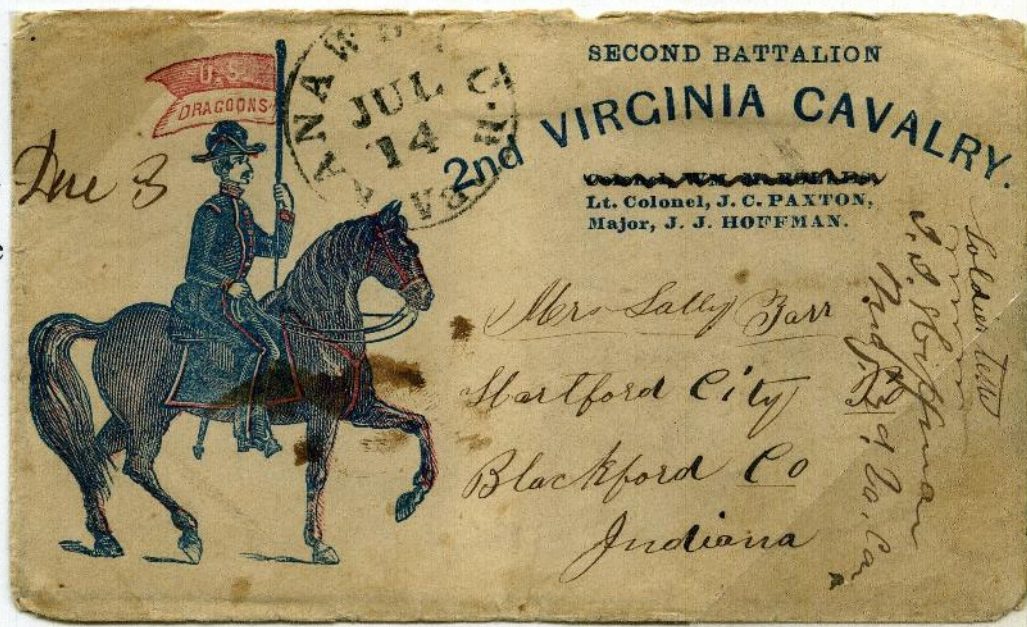 U.S.
DRAGOONS
KANAWHA
JUL
14
C.H.
VA
SECOND BATTALION
2nd VIRGINIA CAVALRY.
Lt. Colonel, J. C. PAXTON,
Major, J. J. HOFFMAN.
Due 3
Mrs Sally
Hartford City
Blackford Co
Indiana
Soldier
J. J. Hoffman